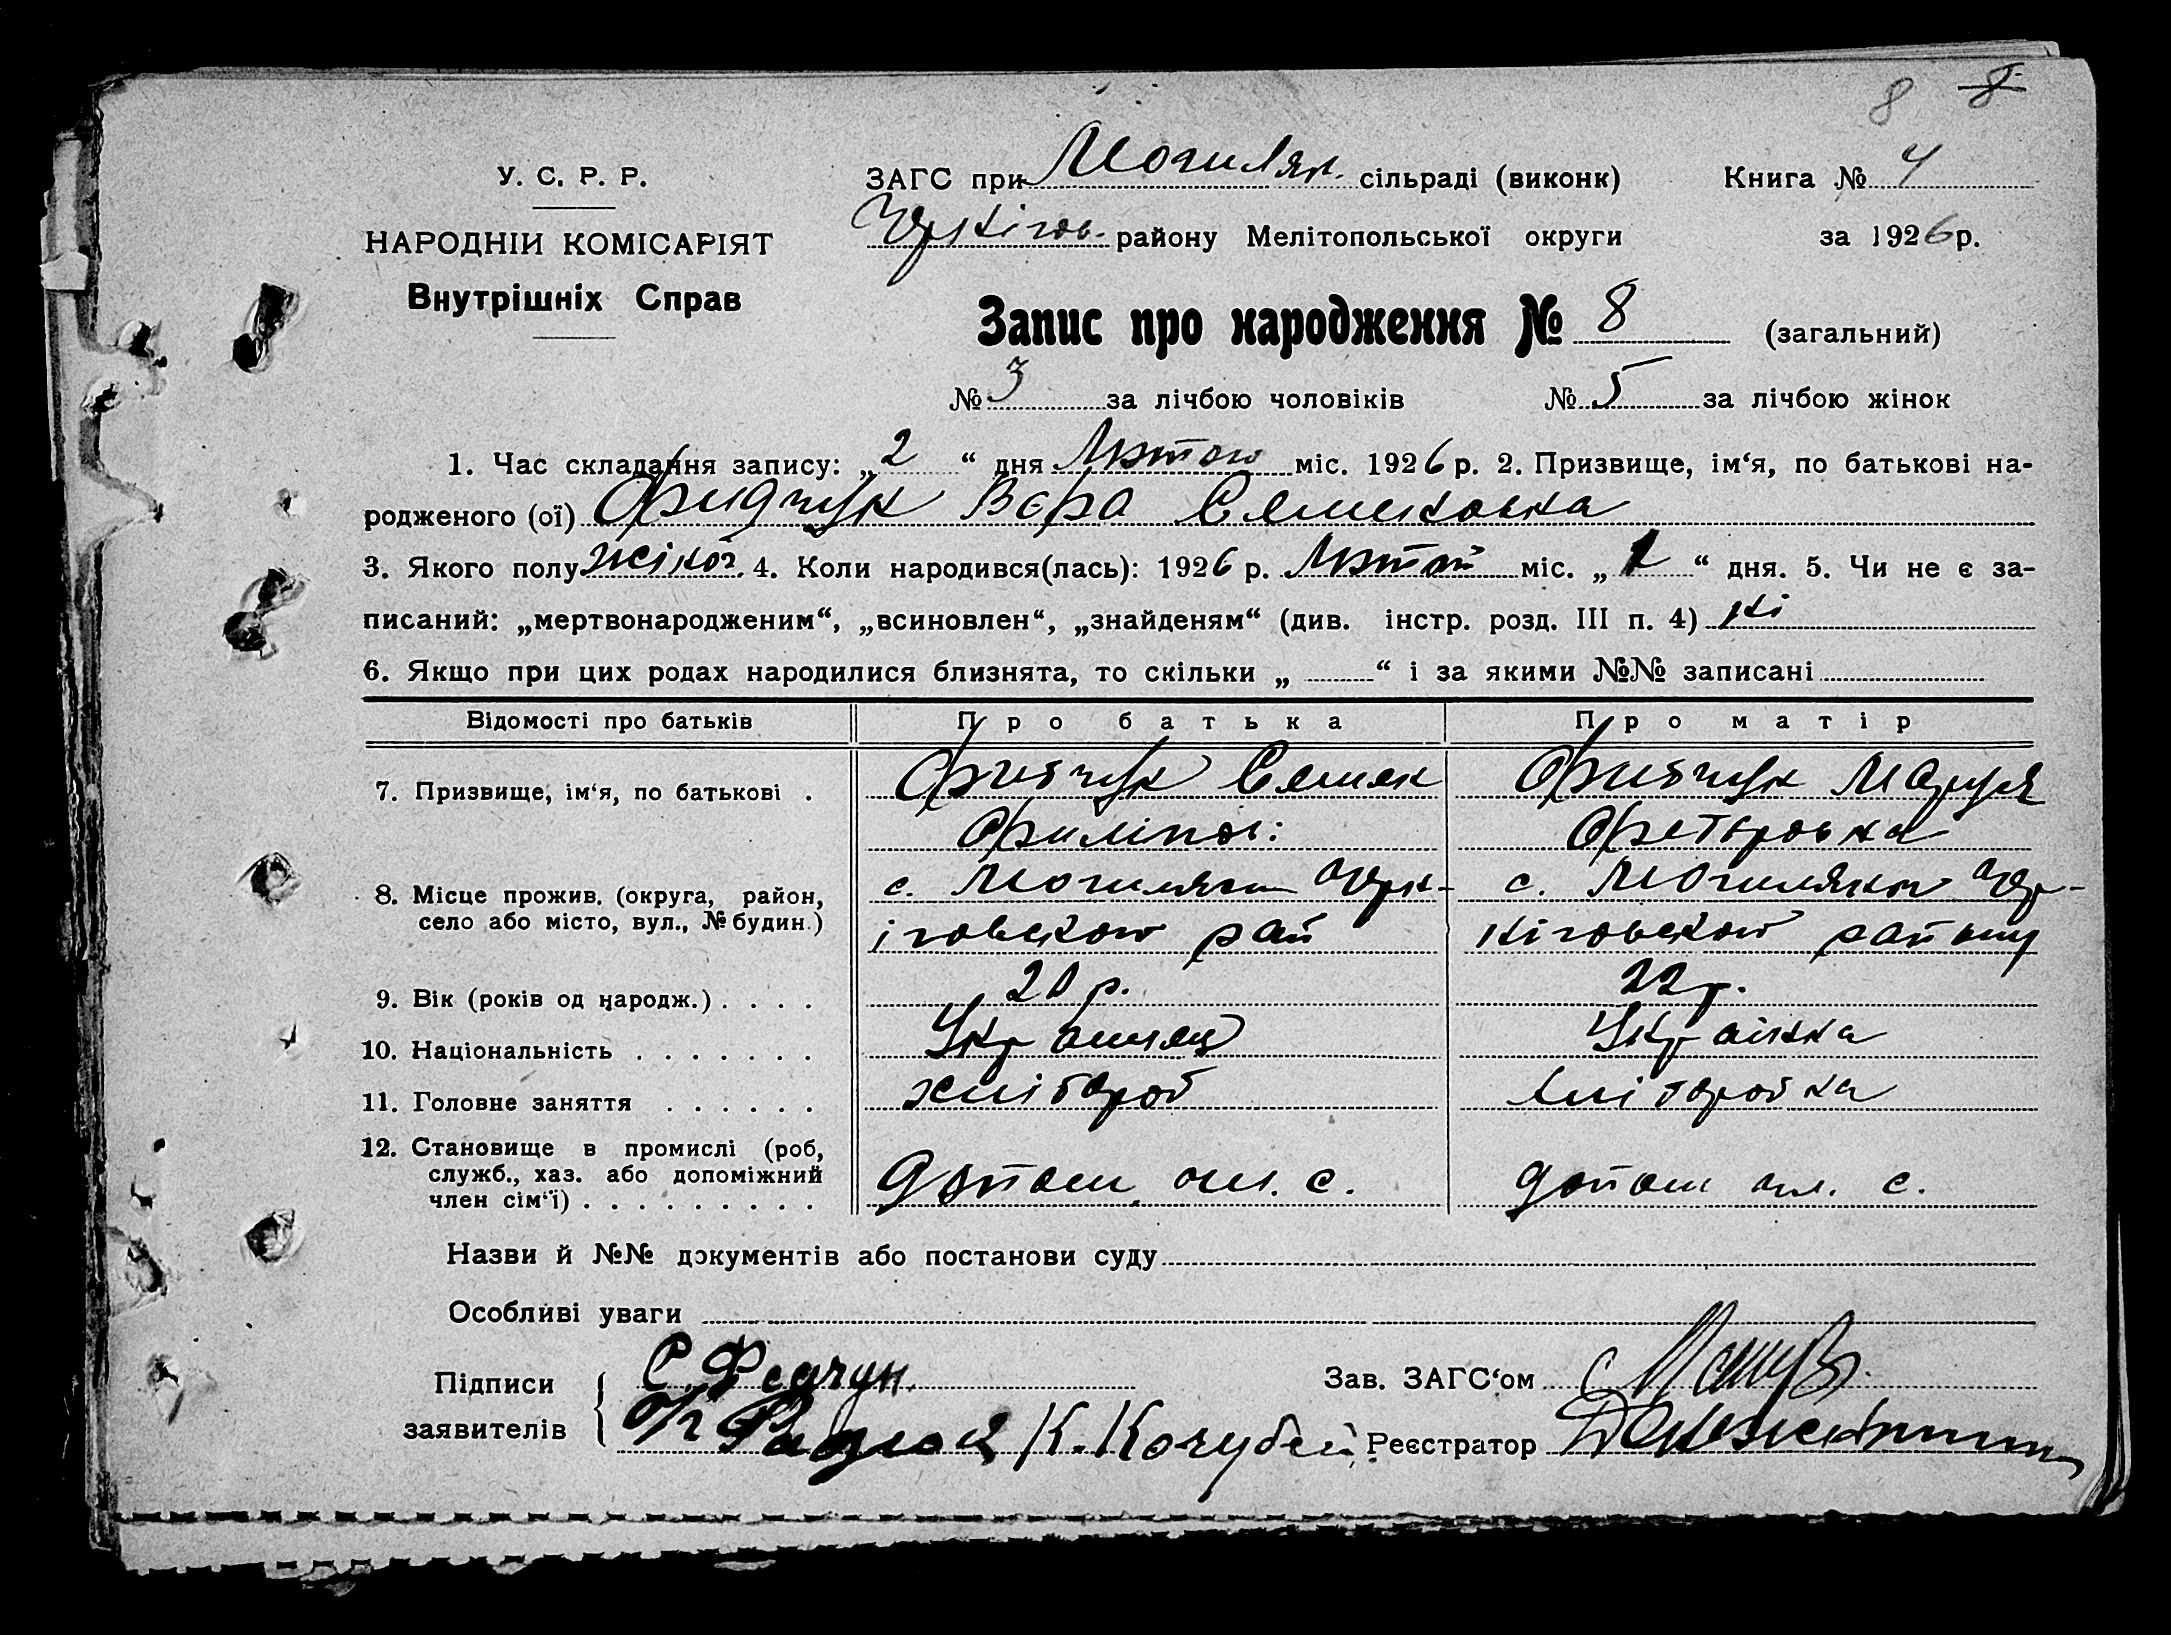 8 8
У. С. Р. Р.
НАРОДНІЙ КОМІСАРІЯТ
Внутрішніх Справ
ЗАГС при Могилян. сільраді (виконк) Книга № 4
Чернігов. району Мелітопольської округи за 1926 р.
Запис про народження № 8 (загальний)
№ 3 за лічбою чоловіків № 5 за лічбою жінок
1. Час складання запису: „ 2 “ дня Лютого міс. 1926 р. 2. Призвище, ім‘я, по батькові на-
родженого (ої) Фидчук Вєра Семеновна
3. Якого полу жіноч. 4. Коли народився(лась): 1926 р. Лютий міс. „ 1 “ дня. 5. Чи не є за-
писаний: „мертвонародженим“, „всиновлен“, „знайденям“ (див. інстр. розд. III п. 4) ні
6. Якщо при цих родах народилися близнята, то скільки „ “ і за якими №№ записані
Відомості про батьків Про батька Про матір
7. Призвище, ім‘я, по батькові . Фидчук Семен Фидчук Марія
Филіпов: Фетьровна
8. Місце прожив. (округа, район, с. Могиляни Черн- с. Могиляной Чер-
село або місто, вул., № будин.) іговского рай ніговского району
9. Вік (років од народж.) . . . . 20 р. 22 р.
10. Національність . . . . . . . Українец Українка
11. Головне заняття . . . . . . хлібороб хліборобка
12. Становище в промислі (роб,
служб., хаз. або допоміжний допом. чл. с. допом чл. с.
член сім‘ї) . . . . . . . . .
Назви й №№ документів або постанови суду
Особливі уваги
Підписи С. Федчун. Зав. ЗАГС‘ом
заявителів К. Кочубей Реєстратор